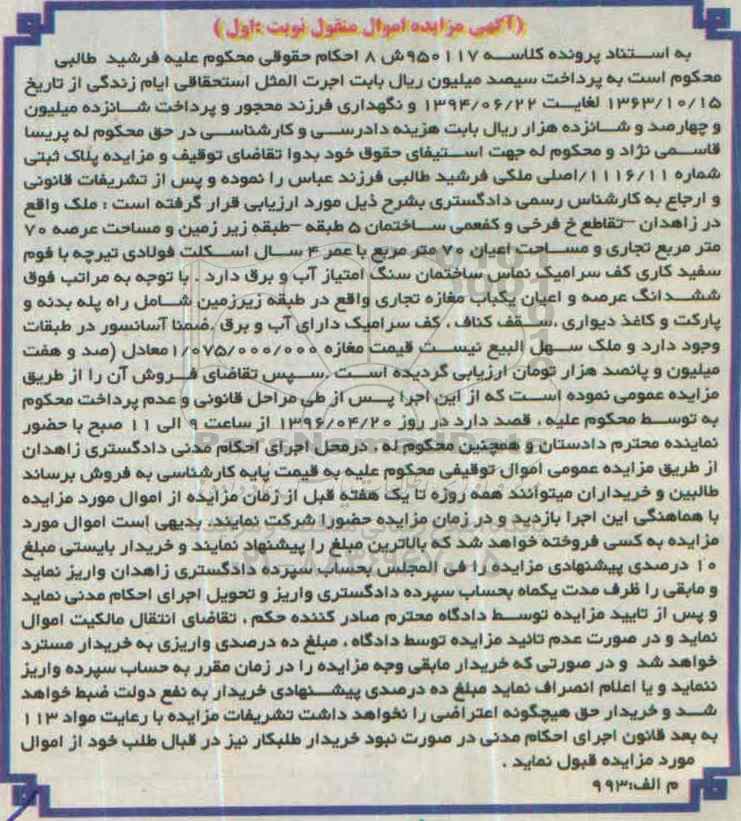 (آگهی مزایده اموال منقول نوبت :اول)
به استناد پرونده کلاسه ۹۵۰۱۱۷ش ۸ احکام حقوقی محکوم علیه فرشید طالبی
محکوم است به پرداخت سیصد میلیون ریال بابت اجرت المثل استحقاقی ایام زندگی از تاریخ
۱۳۶۳/۱۰/۱۵ لغایت ۱۳۹۴/۰۶/۲۲ و نگهداری فرزند محجور و پرداخت شانزده میلیون
و چهارصد و شانزده هزار ریال بابت هزینه دادرسی و کارشناسی در حق محکوم له پریسا
قاسمی نژاد و محکوم له جهت استیفای حقوق خود بدوا تقاضای توقیف و مزایده پلاک ثبتی
شماره ۱۱۱۶/۱۱/اصلی ملکی فرشید طالبی فرزند عباس را نموده و پس از تشریفات قانونی
و ارجاع به کارشناس رسمی دادگستری بشرح ذیل مورد ارزیابی قرار گرفته است : ملک واقع
در زاهدان –تقاطع خ فرخی و کفعمی ساختمان ۵ طبقه –طبقه زیر زمین و مساحت عرصه ۷۰
متر مربع تجاری و مساحت اعیان ۷۰ متر مربع با عمر ۴ سال اسکلت فولادی تیرچه با فوم
سفید کاری کف سرامیک نماس ساختمان سنگ امتیاز آب و برق دارد . با توجه به مراتب فوق
ششدانگ عرصه و اعیان یکباب مغازه تجاری واقع در طبقه زیرزمین شامل راه پله بدنه و
پارکت و کاغذ دیواری ،سقف کناف ، کف سرامیک دارای آب و برق ،ضمنا آسانسور در طبقات
وجود دارد و ملک سهل البیع نیست قیمت مغازه ۱/۰۷۵/۰۰۰/۰۰۰ معادل (صد و هفت
میلیون و پانصد هزار تومان ارزیابی گردیده است .سپس تقاضای فروش آن را از طریق
مزایده عمومی نموده است که از این اجرا پس از طی مراحل قانونی و عدم پرداخت محکوم
به توسط محکوم علیه ، قصد دارد در روز ۱۳۹۶/۰۴/۲۰ از ساعت ۹ الی ۱۱ صبح با حضور
نماینده محترم دادستان و همچنین محکوم له ، درمحل اجرای احکام مدنی دادگستری زاهدان
از طریق مزایده عمومی اموال توقیفی محکوم علیه به قیمت پایه کارشناسی به فروش برساند
طالبین و خریداران میتوانند همه روزه تا یک هفته قبل از زمان مزایده از اموال مورد مزایده
با هماهنگی این اجرا بازدید و در زمان مزایده حضورا شرکت نمایند. بدیهی است اموال مورد
مزایده به کسی فروخته خواهد شد که بالاترین مبلغ را پیشنهاد نمایند و خریدار بایستی مبلغ
۱۰ درصدی پیشنهادی مزایده را فی المجلس بحساب سپرده دادگستری زاهدان واریز نماید
و مابقی را ظرف مدت یکماه بحساب سپرده دادگستری واریز و تحویل اجرای احکام مدنی نماید
و پس از تایید مزایده توسط دادگاه محترم صادر کننده حکم ، تقاضای انتقال مالکیت اموال
نماید و در صورت عدم تائید مزایده توسط دادگاه ، مبلغ ده درصدی واریزی به خریدار مسترد
خواهد شد و در صورتی که خریدار مابقی وجه مزایده را در زمان مقرر به حساب سپرده واریز
ننماید و یا اعلام انصراف نماید مبلغ ده درصدی پیشنهادی خریدار به نفع دولت ضبط خواهد
شد و خریدار حق هیچگونه اعتراضی را نخواهد داشت تشریفات مزایده با رعایت مواد ۱۱۳
به بعد قانون اجرای احکام مدنی در صورت نبود خریدار طلبکار نیز در قبال طلب خود از اموال
مورد مزایده قبول نماید .
م الف:۹۹۳